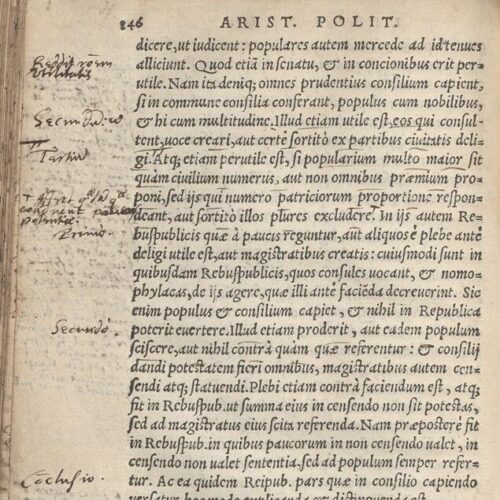 146 ARIST. POLIT.
dicere, ut iudicent: populares autem mercede ad id tenues
alliciunt. Quod etiã in senatu, & in concionibus erit per-
utile. Nam ita deniq; omnes prudentius consilium capient,
si in commune consilia conferant, populus cum nobilibus,
& hi cum multitudine. Illud etiam utile est, eos qui consul-
tent, uoce creari, aut certè sortitò ex partibus ciuitatis deli-
gi. Atq; etiam perutile est, si popularium multo maior sit
quàm ciuilium numerus, aut non omnibus præmium pro-
poni, sed ijs qui numero patriciorum proportione respon-
deant, aut sortitò illos plures excludere. In ijs autem Re-
buspublicis quæ à paucis reguntur, aut aliquos è plebe antè
deligi utile est, aut magistratibus creatis: cuiusmodi sunt in
quibusdam Rebuspublicis, quos consules uocant, & nomo-
phylacas, de ijs agere, quæ illi antè faciẽda decreuerint. Sic
enim populus & consilium capiet, & nihil in Republica
poterit euertere. Illud etiam proderit, aut eadem populum
sciscere, aut nihil contrà quàm quæ referentur: & consilij
dandi potestatem fieri omnibus, magistratibus autem cen-
sendi atq; statuendi. Plebi etiam contrà faciendum est, atq;
fit in Rebuspub. ut summa eius in censendo non sit potestas,
sed ad magistratus eius scita referenda. Nam præposterè fit
in Rebuspub. in quibus paucorum in non censendo ualet, in
censendo non ualet sententia. sed ad populum semper refer-
tur. Ac ea quidem Reipub. pars quæ in consilio capiendo
Tertiũ
Primo
Secundo.
Coclusio.